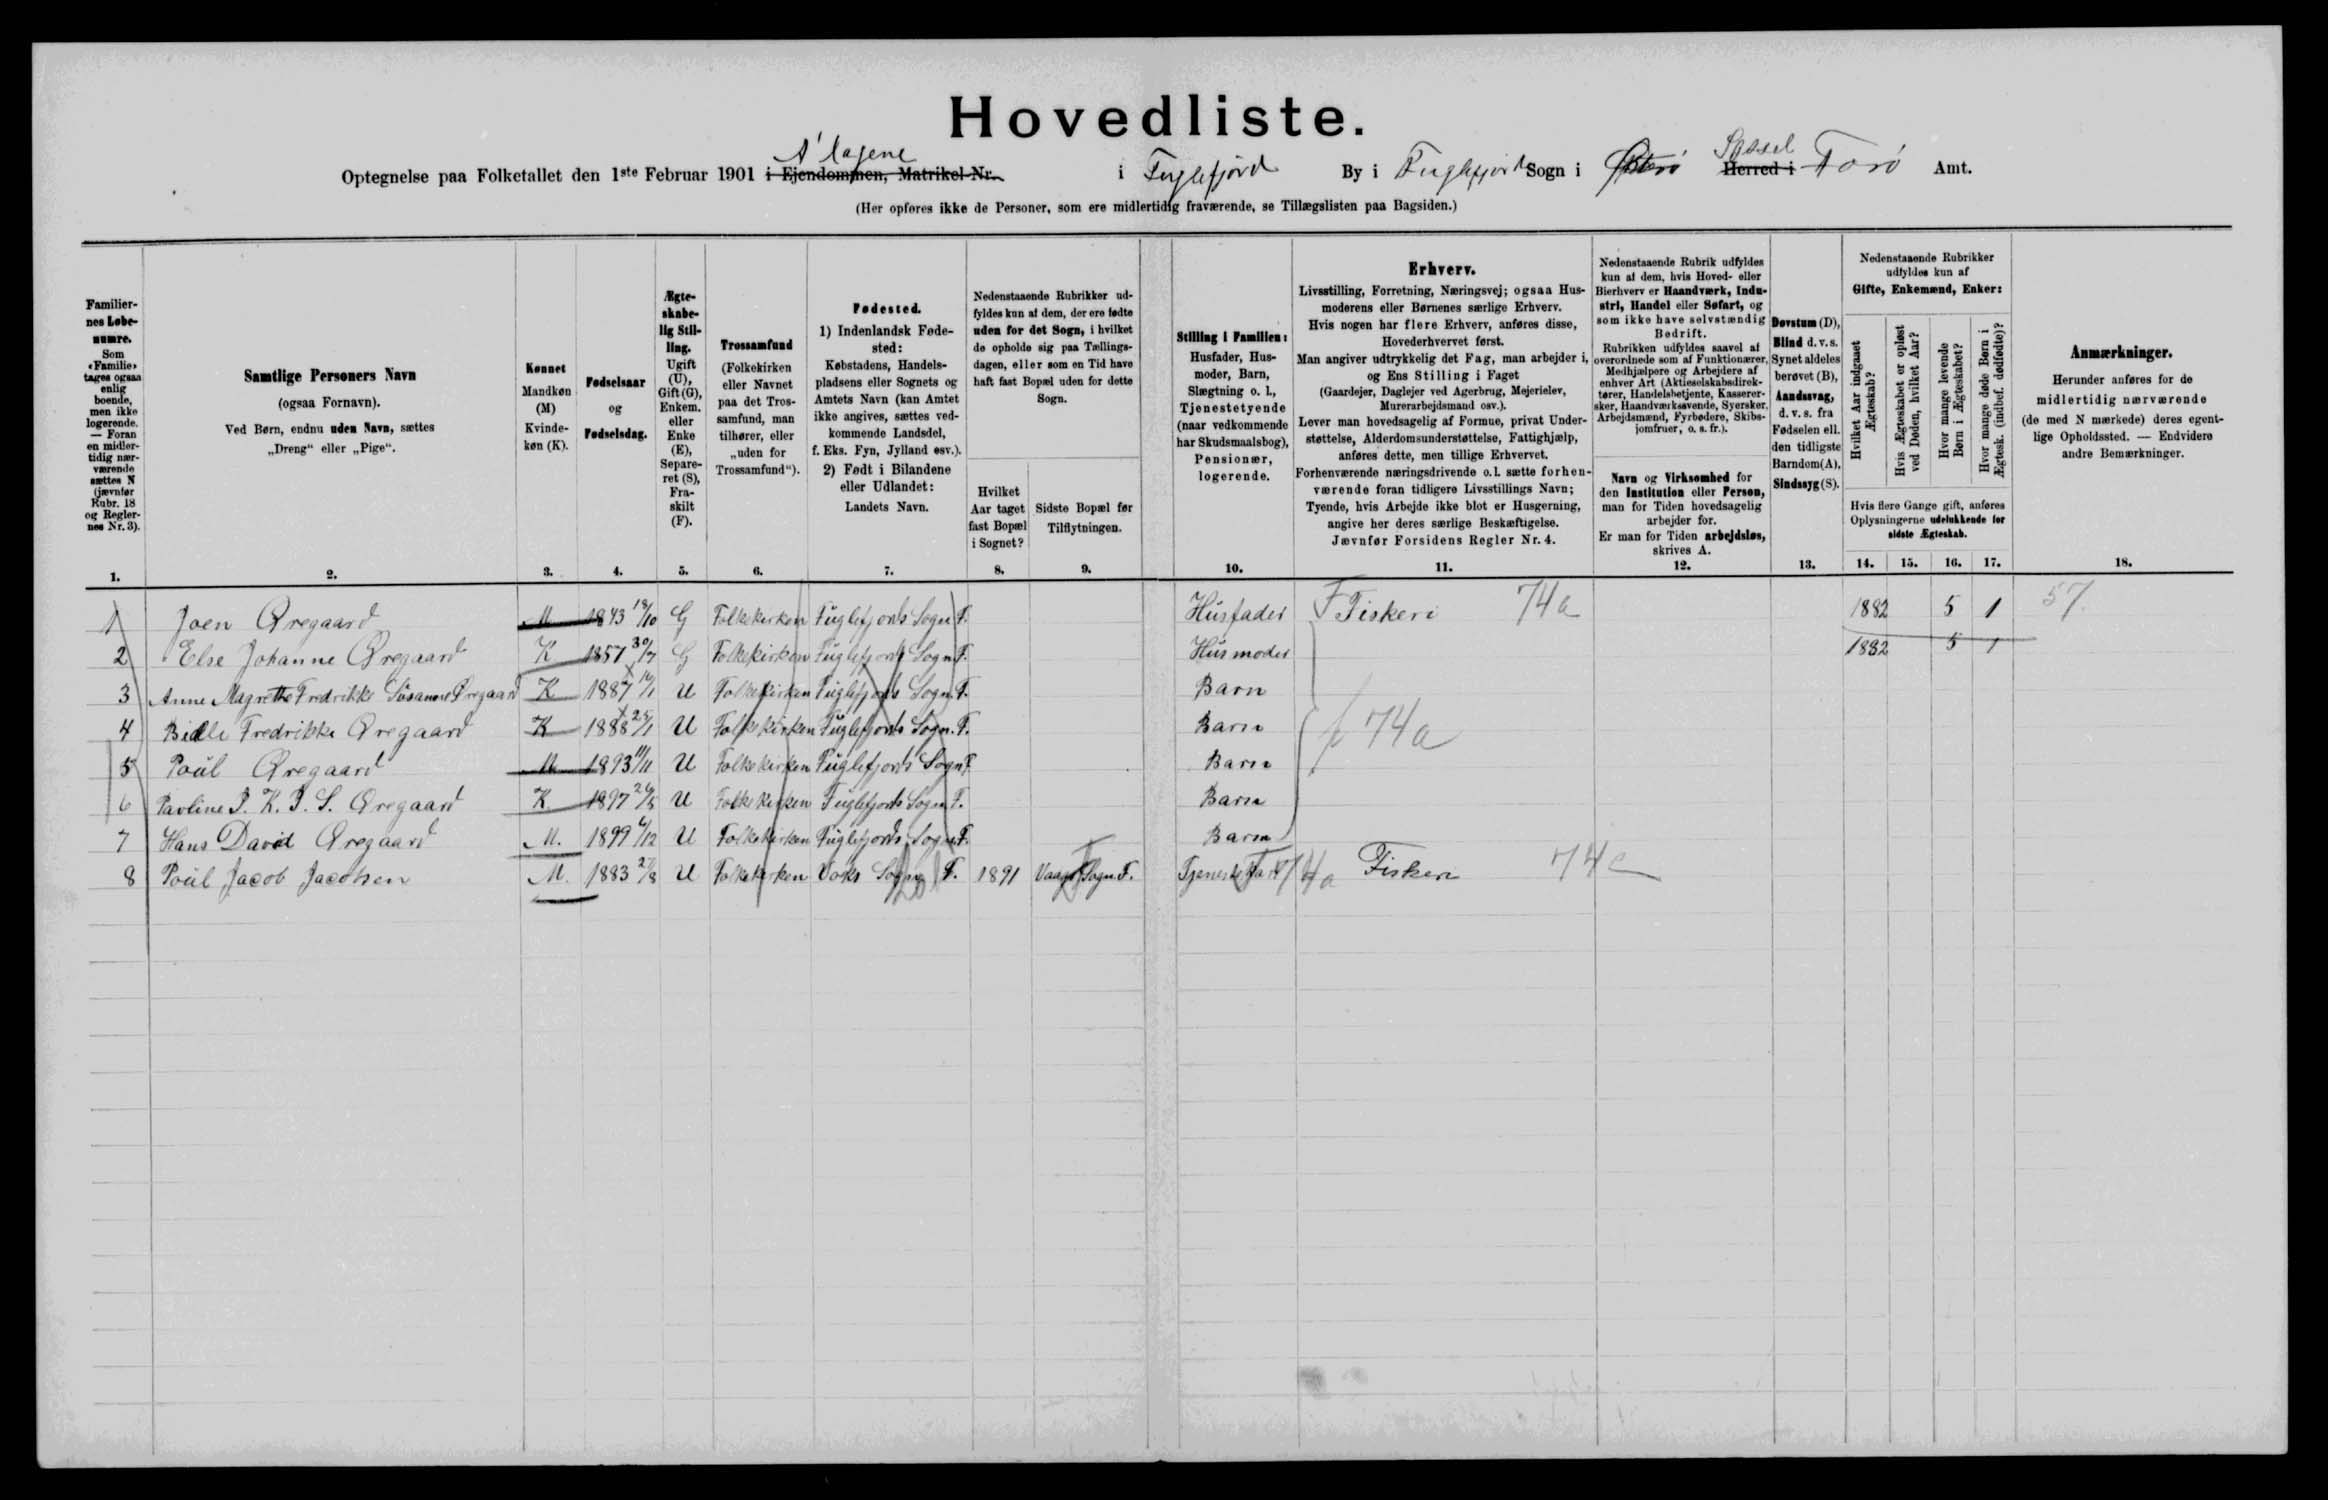 Hovedliste.
Optegnelse paa Folketallet den 1ste Februar 1901 i Ejendommen, Matrikel-Nr. A'lagene i Fuglefjord By i Fuglefjord Sogn i Østerø Herred i Syssel Farø Amt.
(Her opføres ikke de Personer, som ere midlertidig fraværende, se Tillægslisten paa Bagsiden.)
Familiernes Løbenumre. Som «Familie» tages ogsaa enlig boende, men ikke logerende. — Foran en midlertidig nærværende sættes N (jævnfør Rubr. 18 og Reglernes Nr. 3).
Samtlige Personers Navn (ogsaa Fornavn). Ved Børn, endnu uden Navn, sættes „Dreng“ eller „Pige“.
Kønnet Mandkøn (M) Kvindekøn (K).
Fødselsaar og Fødselsdag.
Ægteskabelig Stilling. Ugift (U), Gift (G), Enkem. eller Enke (E), Separeret (S), Fraskilt (F).
Trossamfund (Folkekirken eller Navnet paa det Trossamfund, man tilhører, eller „uden for Trossamfund“).
Fødested. 1) Indenlandsk Fødested: Købstadens, Handelspladsens eller Sognets og Amtets Navn (kan Amtet ikke angives, sættes vedkommende Landsdel, f. Eks. Fyn, Jylland osv.). 2) Født i Bilandene eller Udlandet: Landets Navn.
Nedenstaaende Rubrikker udfyldes kun af dem, der ere fødte uden for det Sogn, i hvilket de opholde sig paa Tællingsdagen, eller som en Tid have haft fast Bopæl uden for dette Sogn.
Hvilket Aar taget fast Bopæl i Sognet?
Sidste Bopæl før Tilflytningen.
Stilling i Familien: Husfader, Husmoder, Barn, Slægtning o. l., Tjenestetyende (naar vedkommende har Skudsmaalsbog), Pensionær, logerende.
Erhverv.
Livsstilling, Forretning, Næringsvej; ogsaa Husmoderens eller Børnenes særlige Erhverv.
Hvis nogen har flere Erhverv, anføres disse, Hovederhvervet først.
Man angiver udtrykkelig det Fag, man arbejder i, og Ens Stilling i Faget
(Gaardejer, Daglejer ved Agerbrug, Mejerielev, Murerarbejdsmand osv.).
Lever man hovedsagelig af Formue, privat Understøttelse, Alderdomsunderstøttelse, Fattighjælp, anføres dette, men tillige Erhvervet.
Forhenværende næringsdrivende o. l. sætte forhenværende foran tidligere Livsstillings Navn; Tyende, hvis Arbejde ikke blot er Husgerning, angive her deres særlige Beskæftigelse.
Jævnfør Forsidens Regler Nr. 4.
Nedenstaaende Rubrik udfyldes kun af dem, hvis Hoved- eller Bierhverv er Haandværk, Industri, Handel eller Søfart, og som ikke have selvstændig Bedrift.
Rubrikken udfyldes saavel af overordnede som af Funktionærer, Medhjælpere og Arbejdere af enhver Art (Aktieselskabsdirektører, Handelsbetjente, Kassererersker, Haandværkssvende, Syersker, Arbejdsmænd, Fyrbødere, Skibsjomfruer, o. s. fr.).
Navn og Virksomhed for den Institution eller Person, man for Tiden hovedsagelig arbejder for.
Er man for Tiden arbejdsløs, skrives A.
Døvstum (D), Blind d. v. s. Synet aldeles berøvet (B), Aandssvag, d. v. s. fra Fødselen ell. den tidligste Barndom (A), Sindssyg (S).
Nedenstaaende Rubrikker udfyldes kun af Gifte, Enkemænd, Enker:
Hvilket Aar indgaaet Ægteskab?
Hvis Ægteskabet er opløst ved Døden, hvilket Aar?
Hvor mange levende Børn i Ægteskabet?
Hvor mange døde Børn i Ægtesk. (indbef. dødfødte)?
Hvis flere Gange gift, anføres Oplysningerne udelukkende for sidste Ægteskab.
Anmærkninger.
Herunder anføres for de midlertidig nærværende (de med N mærkede) deres egentlige Opholdssted. — Endvidere andre Bemærkninger.
1. 2. 3. 4. 5. 6. 7. 8. 9. 10. 11. 12. 13. 14. 15. 16. 17. 18.
1 Joen Øregaard M 1843 18/10 G Folkekirken Fuglefjords Sogn F. Husfader F Fiskeri 74a 1882 5 1 57.
2 Else Johanne Øregaard K 1857 30/7 G Folkekirken Fuglefjords Sogn F. Husmoder 1882 5 1
3 Anne Magrethe Fredrikke Susanne Øregaard K 1887 16/1 U Folkekirken Fuglefjords Sogn F. Barn
4 Bielle Fredrikke Øregaard K 1888 25/1 U Folkekirken Fuglefjords Sogn. F. Barn f 74a
5 Poul Øregaard M 1893 11/11 U Folkekirken Fuglefjords Sogn F. Barn
6 Pavline P. K. J. S. Øregaard K. 1897 26/5 U Folkekirken Fuglefjords Sogn F. Barn
7 Hans David Øregaard M. 1899 6/12 U Folkekirken Fuglefjords Sogn F. Barn
8 Poul Jacob Jacobsen M. 1883 2/8 U Folkekirken Vaks Sogn F. 1891 Vaags Sogn F. 74a Fiskeri 74a